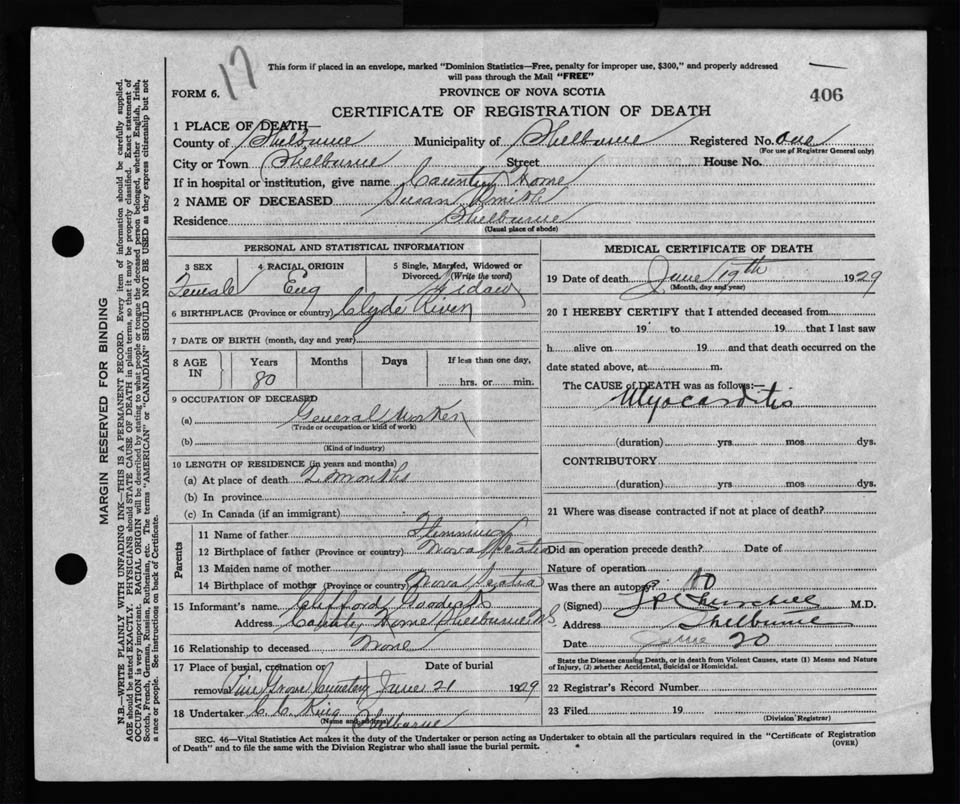 17
This form if placed in an envelope, marked "Dominion Statistics—Free, penalty for improper use, $300," and properly addressed
will pass through the Mail "FREE"
FORM 6.
PROVINCE OF NOVA SCOTIA
406
CERTIFICATE OF REGISTRATION OF DEATH
1 PLACE OF DEATH—
County of Shelburne Municipality of Shelburne Registered No. one
(For use of Registrar General only)
City or Town Shelburne Street House No.
If in hospital or institution, give name County Home
2 NAME OF DECEASED Susan Smith
Residence Shelburne
(Usual place of abode)
PERSONAL AND STATISTICAL INFORMATION
3 SEX 4 RACIAL ORIGIN 5 Single, Married, Widowed or
Divorced (Write the word)
Female Eng Widow
6 BIRTHPLACE (Province or country) Clyde River
7 DATE OF BIRTH (month, day and year)
8 AGE IN Years Months Days If less than one day,
80 hrs. or min.
9 OCCUPATION OF DECEASED
(a) General Worker
(Trade or occupation or kind of work)
(b)
(Kind of industry)
10 LENGTH OF RESIDENCE (in years and months)
(a) At place of death 2 months
(b) In province
(c) In Canada (if an immigrant)
Parents
11 Name of father Flemming
12 Birthplace of father (Province or country) Nova Scotia
13 Maiden name of mother
14 Birthplace of mother (Province or country) Nova Scotia
15 Informant's name Clifford
Address County Home Shelburne N.S.
16 Relationship to deceased None
17 Place of burial, cremation or Date of burial
removal Pine Grove Cemetery June 21 1929
18 Undertaker C. C. King
(Name and address) Shelburne
MEDICAL CERTIFICATE OF DEATH
19 Date of death June 19th 1929
(Month, day and year)
20 I HEREBY CERTIFY that I attended deceased from
19 to 19 that I last saw
h alive on 19 and that death occurred on the
date stated above, at m.
The CAUSE of DEATH was as follows:—
Myocarditis
(duration) yrs. mos. dys.
CONTRIBUTORY
(duration) yrs. mos. dys.
21 Where was disease contracted if not at place of death?
Did an operation precede death? Date of
Nature of operation
Was there an autopsy? No
(Signed) Churchill M.D.
Address Shelburne
Date June 20
State the Disease causing Death, or in death from Violent Causes, state (1) Means and Nature
of Injury, (2) whether Accidental, Suicidal or Homicidal.
22 Registrar's Record Number
23 Filed 19
(Division Registrar)
SEC. 46—Vital Statistics Act makes it the duty of the Undertaker or person acting as Undertaker to obtain all the particulars required in the "Certificate of Registration
of Death" and to file the same with the Division Registrar who shall issue the burial permit.
(OVER)
MARGIN RESERVED FOR BINDING
N.B.—WRITE PLAINLY WITH UNFADING INK—THIS IS A PERMANENT RECORD. Every item of information should be carefully supplied.
AGE should be stated EXACTLY. PHYSICIANS should STATE CAUSE OF DEATH in plain terms, so that it may be properly classified. Exact statement of
OCCUPATION is very important. RACIAL ORIGIN will be described by stating to what people or tongue the deceased person belonged, whether English, Irish,
Scotch, French, German, Russian, Ruthenian, etc. The terms "AMERICAN" or "CANADIAN" SHOULD NOT BE USED as they express citizenship but not
a race or people. See instructions on back of Certificate.